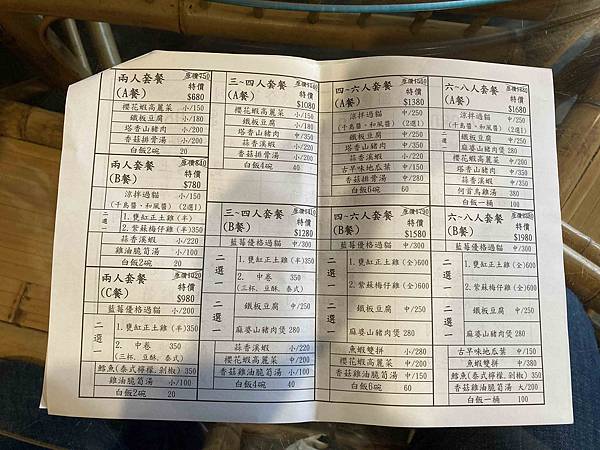 兩人套餐 原價750
(A餐) 特價
$680
櫻花蝦高麗菜 小/150
鐵板豆腐 小/180
塔香山豬肉 小/200
香菇排骨湯 小/200
白飯2碗 20
兩人套餐 原價840
(B餐) 特價
$780
涼拌過貓 小/150
(千島醬、和風醬)(2選1)
二選一
1.甕缸正土雞(半)
2.紫蘇梅仔雞(半)350
蒜香溪蝦 小/220
雞油脆筍湯 小/100
白飯2碗 20
兩人套餐 原價1020
(C餐) 特價
$980
藍莓優格過貓 小/200
二選一
1.甕缸正土雞(半)
2.中卷 350
(三杯、豆酥、泰式)
鱈魚(泰式檸檬、剁椒)350
雞油脆筍湯 小/100
白飯2碗 20
三~四人套餐
(A餐) 特價
$1080
櫻花蝦高麗菜 小/150
鐵板豆腐 小/180
塔香山豬肉 中/350
蒜香溪蝦 小/220
香菇排骨湯 小/200
白飯4碗 40
三~四人套餐
(B餐) 特價
$1280
藍莓優格過貓 中/300
二選一
1.甕缸正土雞(半)350
2.中卷 350
(三杯、豆酥、泰式)
二選一
鐵板豆腐 中/250
麻婆山豬肉煲280
蒜香溪蝦 小/220
櫻花蝦高麗菜 中/200
香菇雞油脆筍湯 小/100
白飯4碗 40
四-六人套餐
(A餐) 特價
$1380
涼拌過貓 中/250
(千島醬、和風醬)(2選1)
鐵板豆腐 中/250
塔香山豬肉 中/350
蒜香溪蝦
古早味地瓜葉 中/150
香菇排骨湯
白飯6碗 60
四-六人套餐
(B餐) 特價
$1580
藍莓優格過貓 中/300
二選一
1.甕缸正土雞(全)600
2.紫蘇梅仔雞(全)600
二選一
鐵板豆腐 中/250
麻婆山豬肉煲280
魚蝦雙拼 小/280
櫻花蝦高麗菜 中/200
香菇雞油脆筍湯 中/150
白飯6碗 60
六~八人套餐
(A餐) 特價
$1680
涼拌過貓 中/250
(千島醬、和風醬)(2選1)
二選一
鐵板豆腐 中/250
麻婆山豬肉煲280
櫻花蝦高麗菜 中/200
塔香山豬肉 中/350
蒜香溪蝦 中/350
何首烏雞湯 380
白飯一桶 100
六-八人套餐
(B餐) 特價
$1980
藍莓優格過貓 中/300
二選一
1.甕缸正土雞(全)600
2.紫蘇梅仔雞(全)600
二選一
鐵板豆腐 中/250
麻婆山豬肉煲 280
古早味地瓜葉 中/150
魚蝦雙拼 中/350
鱈魚(泰式檸檬、剁椒)350
香菇雞油脆筍湯 大/200
白飯一桶 100